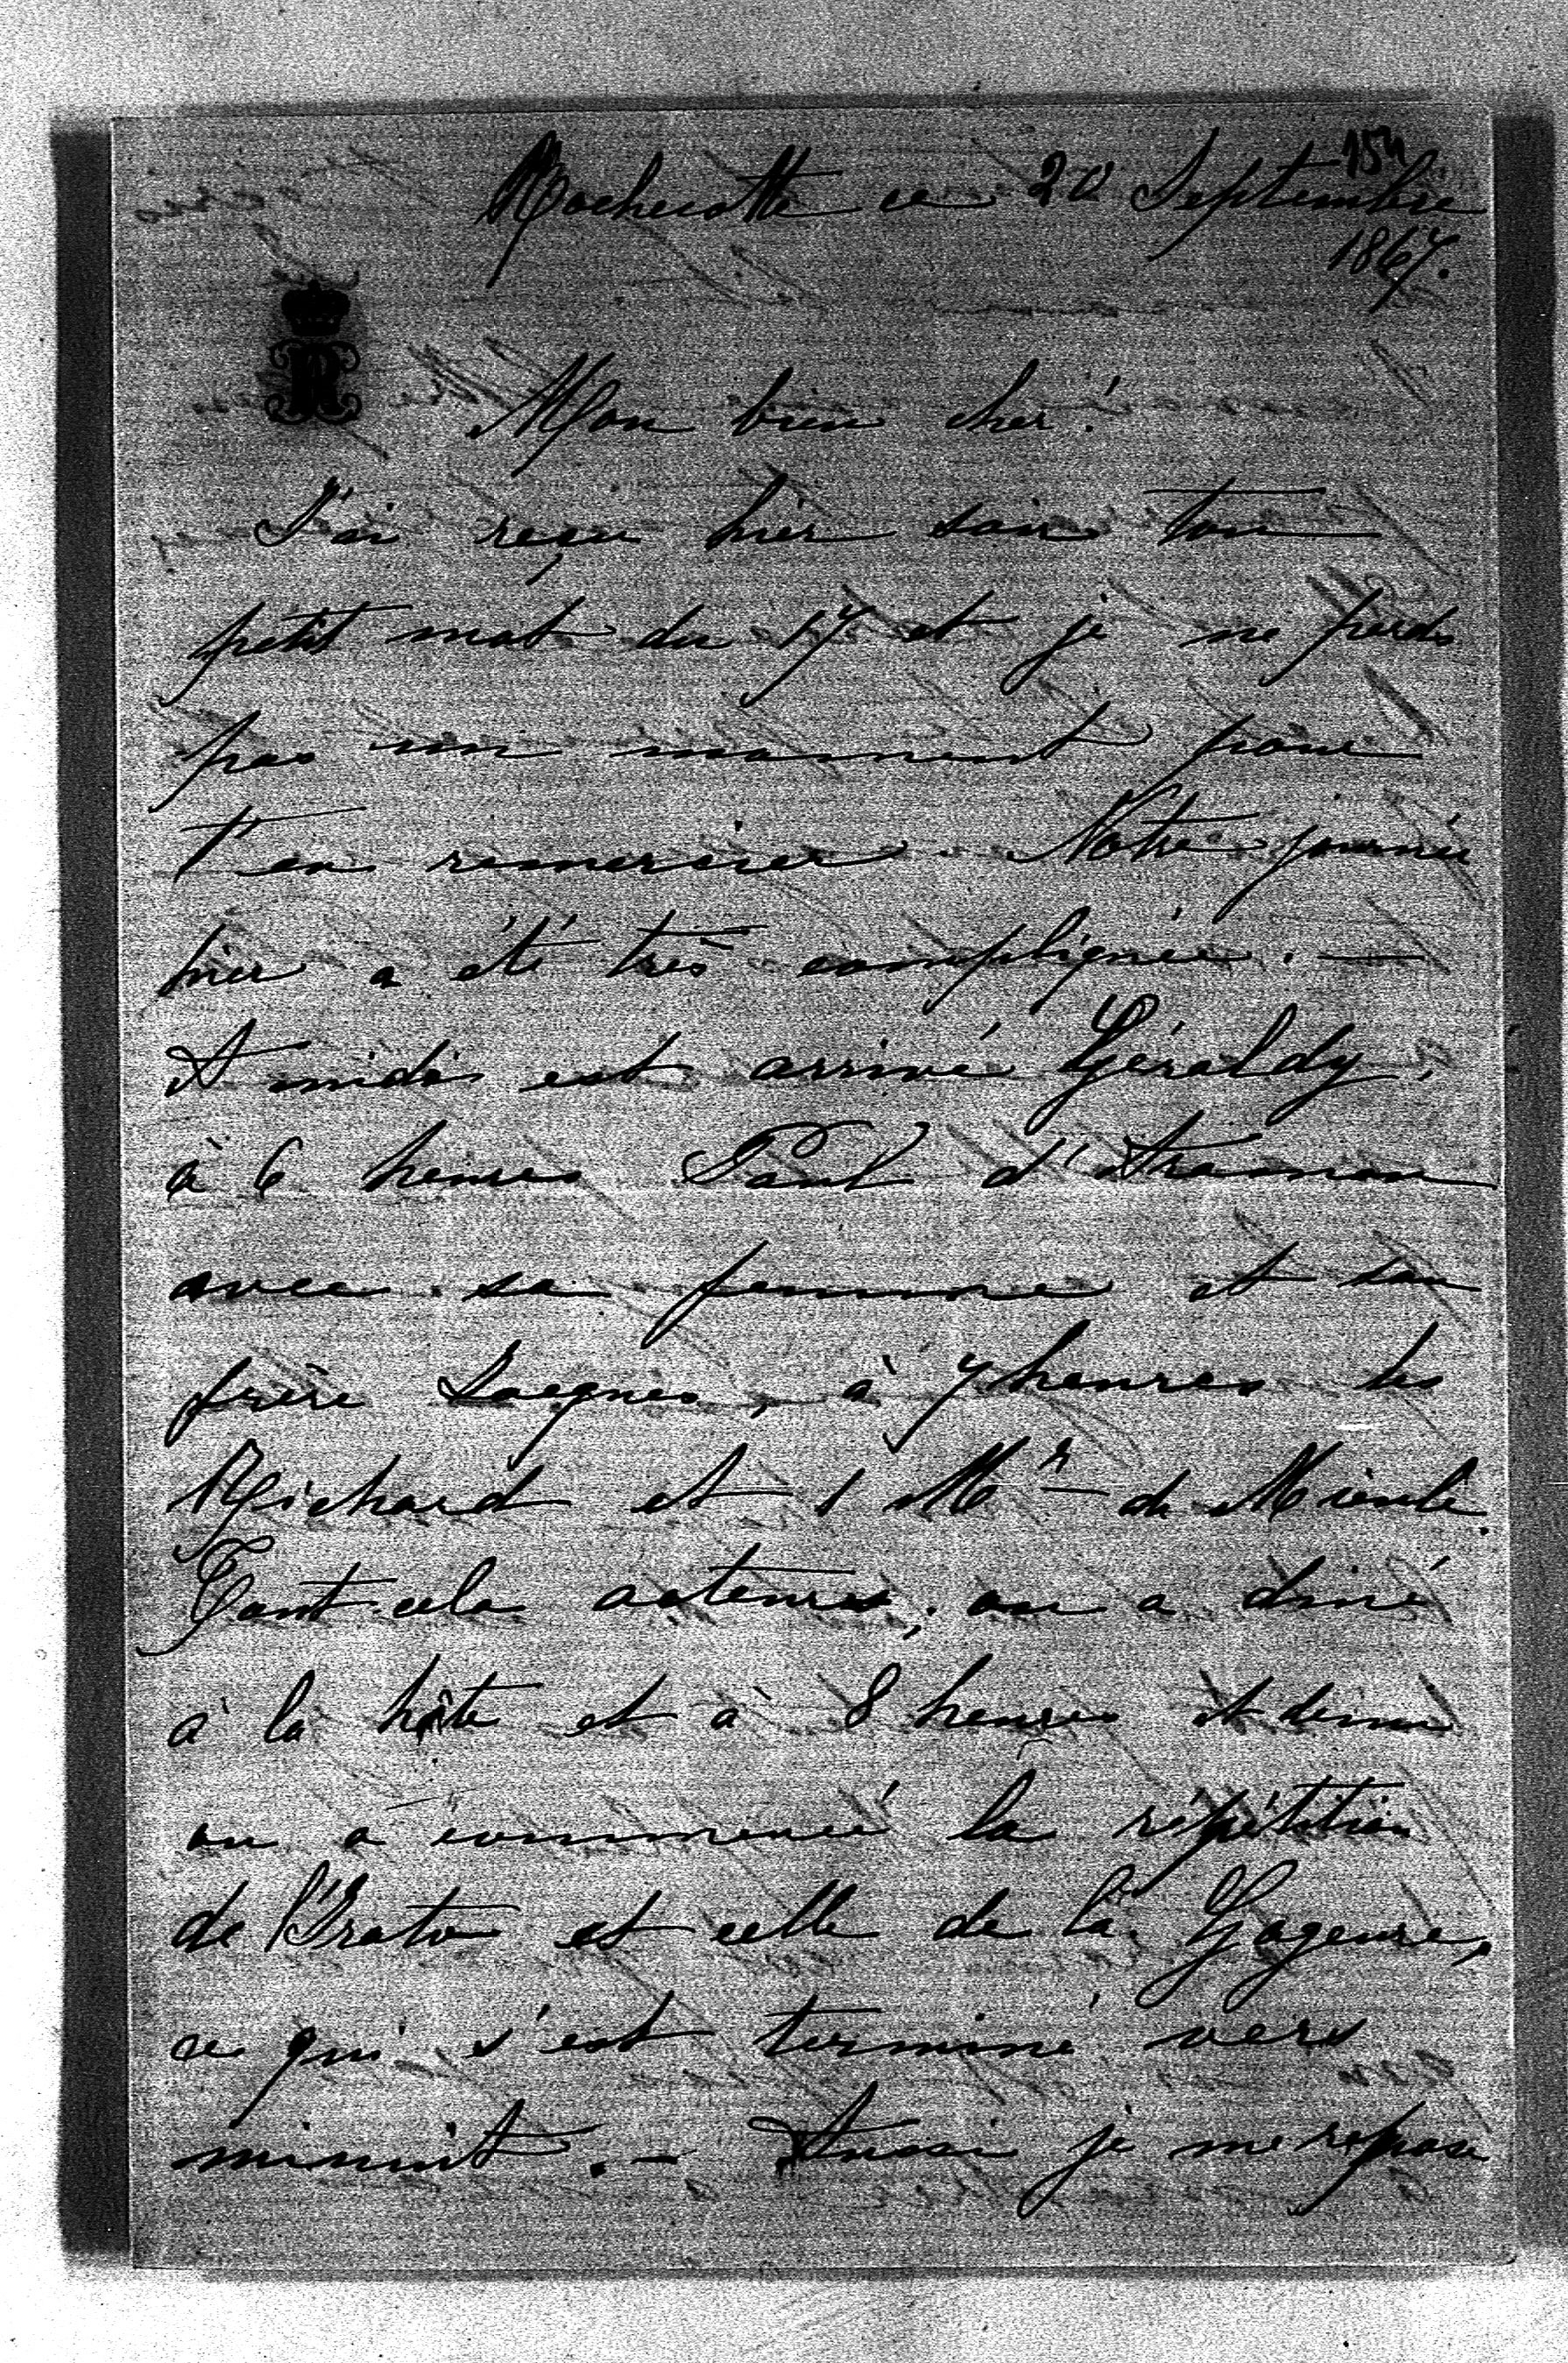 154
Rochecotte ce 20 Septembre
1867.
R
Mon bien cher!
J'ai reçu hier soir ton
petit mot du 17 et je ne perds
pas un moment pour
t'en remercier. Notre journée
hier a été très compliquée. —
A midi est arrivé Géraldy,
à 6 heures Paul d'Aramon
avec sa femme et son
frère Jacques, à 7 heures les
Richard et 1 Mr de
Tout cela acteurs, on a diné
à la hâte et à 8 heures et demi
on a commencé la répétition
de l'Erato et celle de la Gageure,
ce qui s'est terminé vers
minuit. — Aussi je me repose